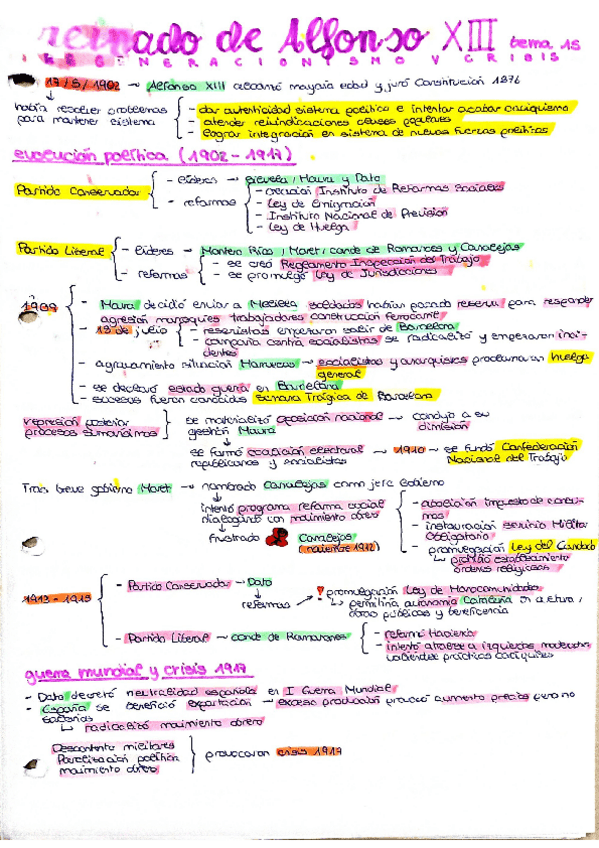 reinado de Alfonso XIII tema 15
REGENERACIONISMO Y CRISIS
17/5/1902 → Alfonso XIII alcanzó mayoría edad y juró Constitución 1876
había resolver problemas
para mantener sistema
- dar autenticidad sistema político e intentar acabar caciquismo
- atender reivindicaciones clases populares
- lograr integración en sistema de nuevas fuerzas políticas
evolución política (1902-1917)
Partido Conservador
- líderes → Silvela, Maura y Dato
- reformas
- creación Instituto de Reformas Sociales
- Ley de Emigración
- Instituto Nacional de Previsión
- Ley de Huelga
Partido Liberal
- líderes → Montero Ríos, Moret, conde de Romanones y Canalejas
- reformas
- se creó Reglamento Inspección del Trabajo
- se promulgó Ley de Jurisdicciones
1909
- Maura decidió enviar a Melilla soldados habían pasado reserva para responder
agresión marroquíes trabajadores construcción ferrocarril
- 18 de julio
- reservistas empezaron salir de Barcelona
- campaña contra socialistas se radicalizó y empezaron inci-
dentes
- agravamiento situación Marruecos → socialistas y anarquistas proclaman huelga
general
- se declaró estado guerra en Barcelona
- sucesos fueron conocidos Semana Trágica de Barcelona
represión posterior
procesos sumarísimos
se materializó oposición nacional → condujo a su
gestión Maura dimisión
se formó coalición electoral → 1910 → se fundó Confederación
republicanos y socialistas Nacional del Trabajo
Tras breve gobierno Moret → nombrado Canalejas como jefe Gobierno
intentó programa reforma social
dialogando con movimiento obrero
frustrado Canalejas
(noviembre 1912)
- abolición impuesto de consu-
mos
- instauración servicio Militar
Obligatorio
- promulgación Ley del Candado
↳ prohibió establecimiento
órdenes religiosas
1913-1915
- Partido Conservador → Dato
reformas
! promulgación Ley de Mancomunidades
↳ permitiría autonomía Cataluña en cultura,
obras públicas y beneficencia
- Partido Liberal → conde de Romanones
- reformó Hacienda
- intentó atraerse a izquierdas moderadas
prácticas caciquiles
guerra mundial y crisis 1917
- Dato decretó neutralidad española en I Guerra Mundial
- España se benefició exportación → exceso producción provocó aumento precios pero no
salarios
↳ radicalizó movimiento obrero
Descontento militares
Paralización política
movimiento obrero
provocaron crisis 1917